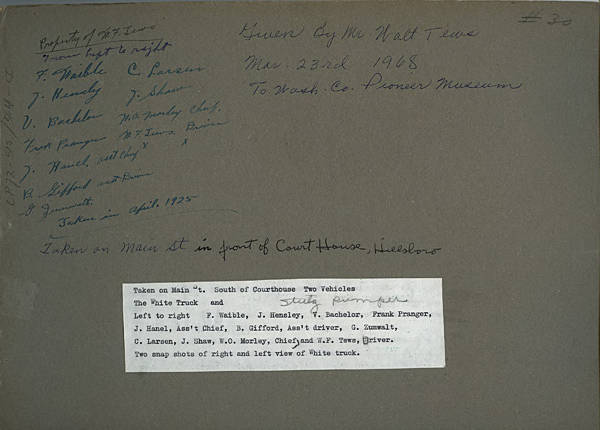 Property of W.F. Tews
From Left to right
F. Waible C. Larsen
J. Hensley J. Shaw
V. Bachelor W.O. Morley Chief.
Frank Pranger W.F. Tews Driver
J. Hanel, asst Chief x x
B. Gifford asst Driver
G Zumwalt
Taken in april. 1925
Given By Mr Walt Tews
Mar. 23rd 1968
To Wash. Co. Pioneer Museum
# 30
Taken on Main St in front of Court House, Hillsboro
Taken on Main "t. South of Courthouse Two Vehicles
The White Truck and Stutz pumper
Left to right F. Waible, J. Hensley, V. Bachelor, Frank Pranger,
J. Hanel, Ass't Chief, B. Gifford, Ass't driver, G. Zumwalt,
C. Larsen, J. Shaw, W.O. Morley, Chief, and W.F. Tews, Driver.
Two snap shots of right and left view of White truck.